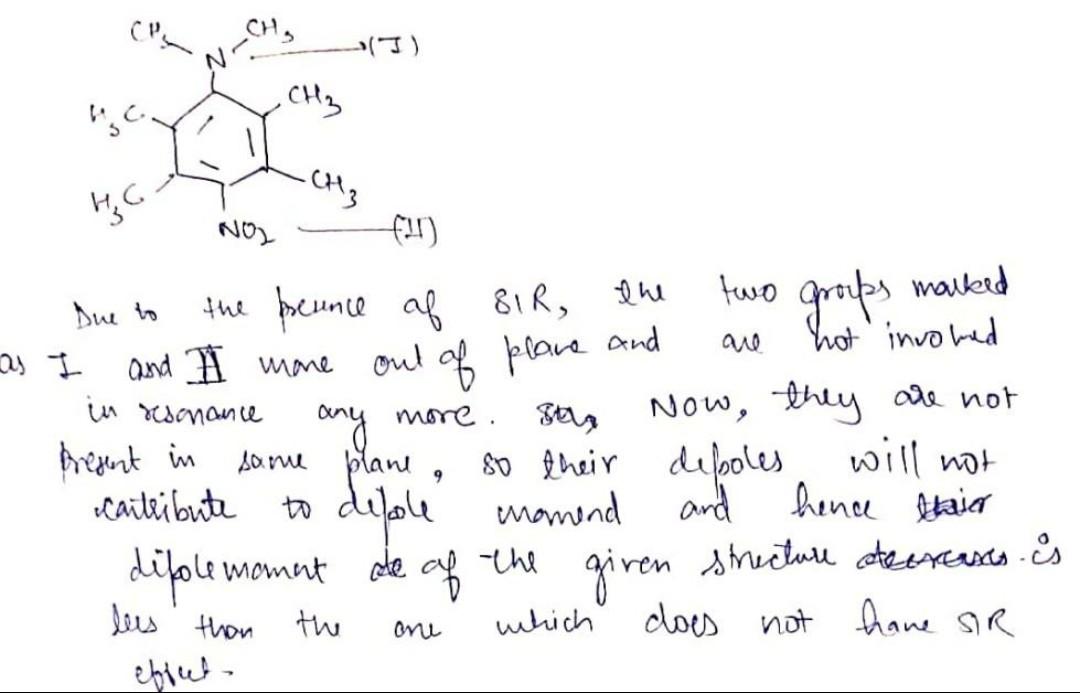 CH3 CH3
N → (I)
H3C CH3
H3C CH3
NO2 — (II)
Due to the presence of SIR, the two groups marked
as I and II move out of plane and are not involved
in resonance any more. Now, they are not
Present in same plane, so their dipoles will not
contribute to dipole moment and hence
dipole moment of the given structure is
less than the one which does not have SIR
effect.